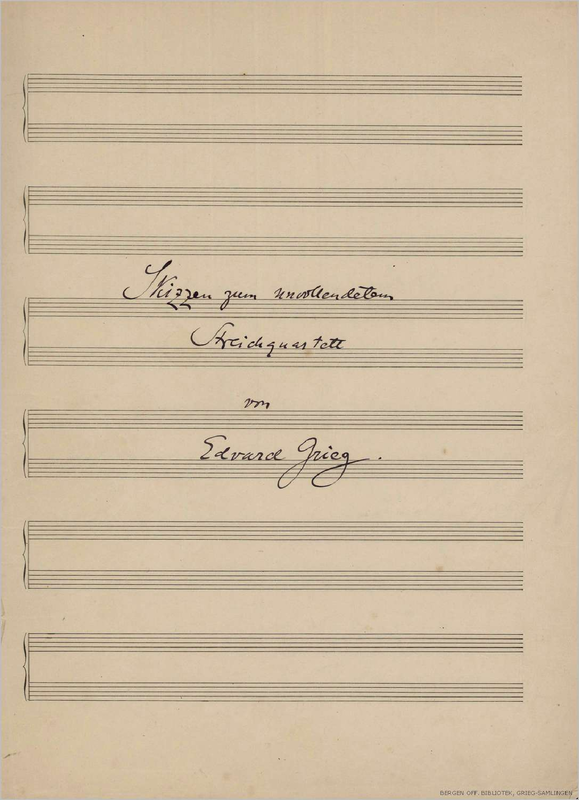 Skizzen zum unvollendetem
Streichquartett
von
Edvard Grieg.
BERGEN OFF. BIBLIOTEK, GRIEG-SAMLINGEN